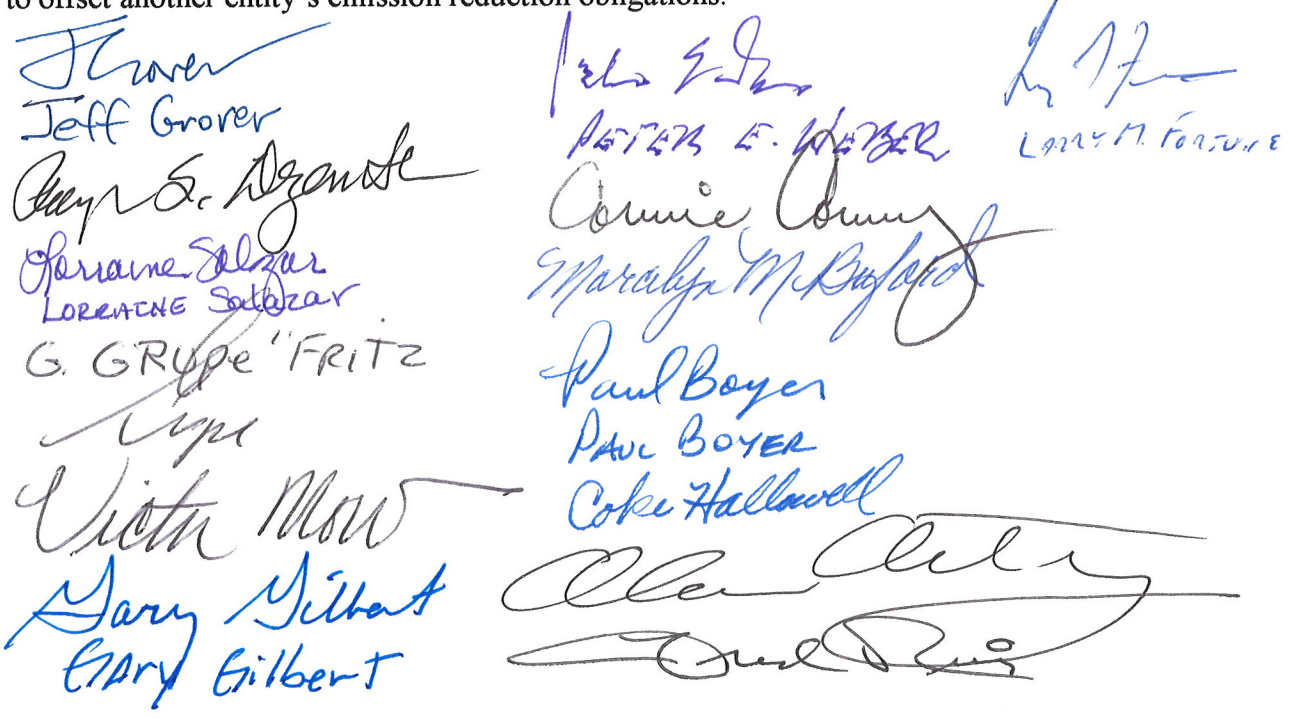 to offset another entity's emission reduction obligations.
JGrover
Jeff Grover
S.
Lorraine Salazar
LORRAINE Salazar
G. GRUPe "FRITZ
Victor Mow
Gary Gilbert
GARY Gilbert
PETER E. WEBER
Connie Conway
Maralyn McBuford
Paul Boyer
PAUL BOYER
Coke Hallowell
Alan
Fred Ruiz
LARRY M. FORTUNE